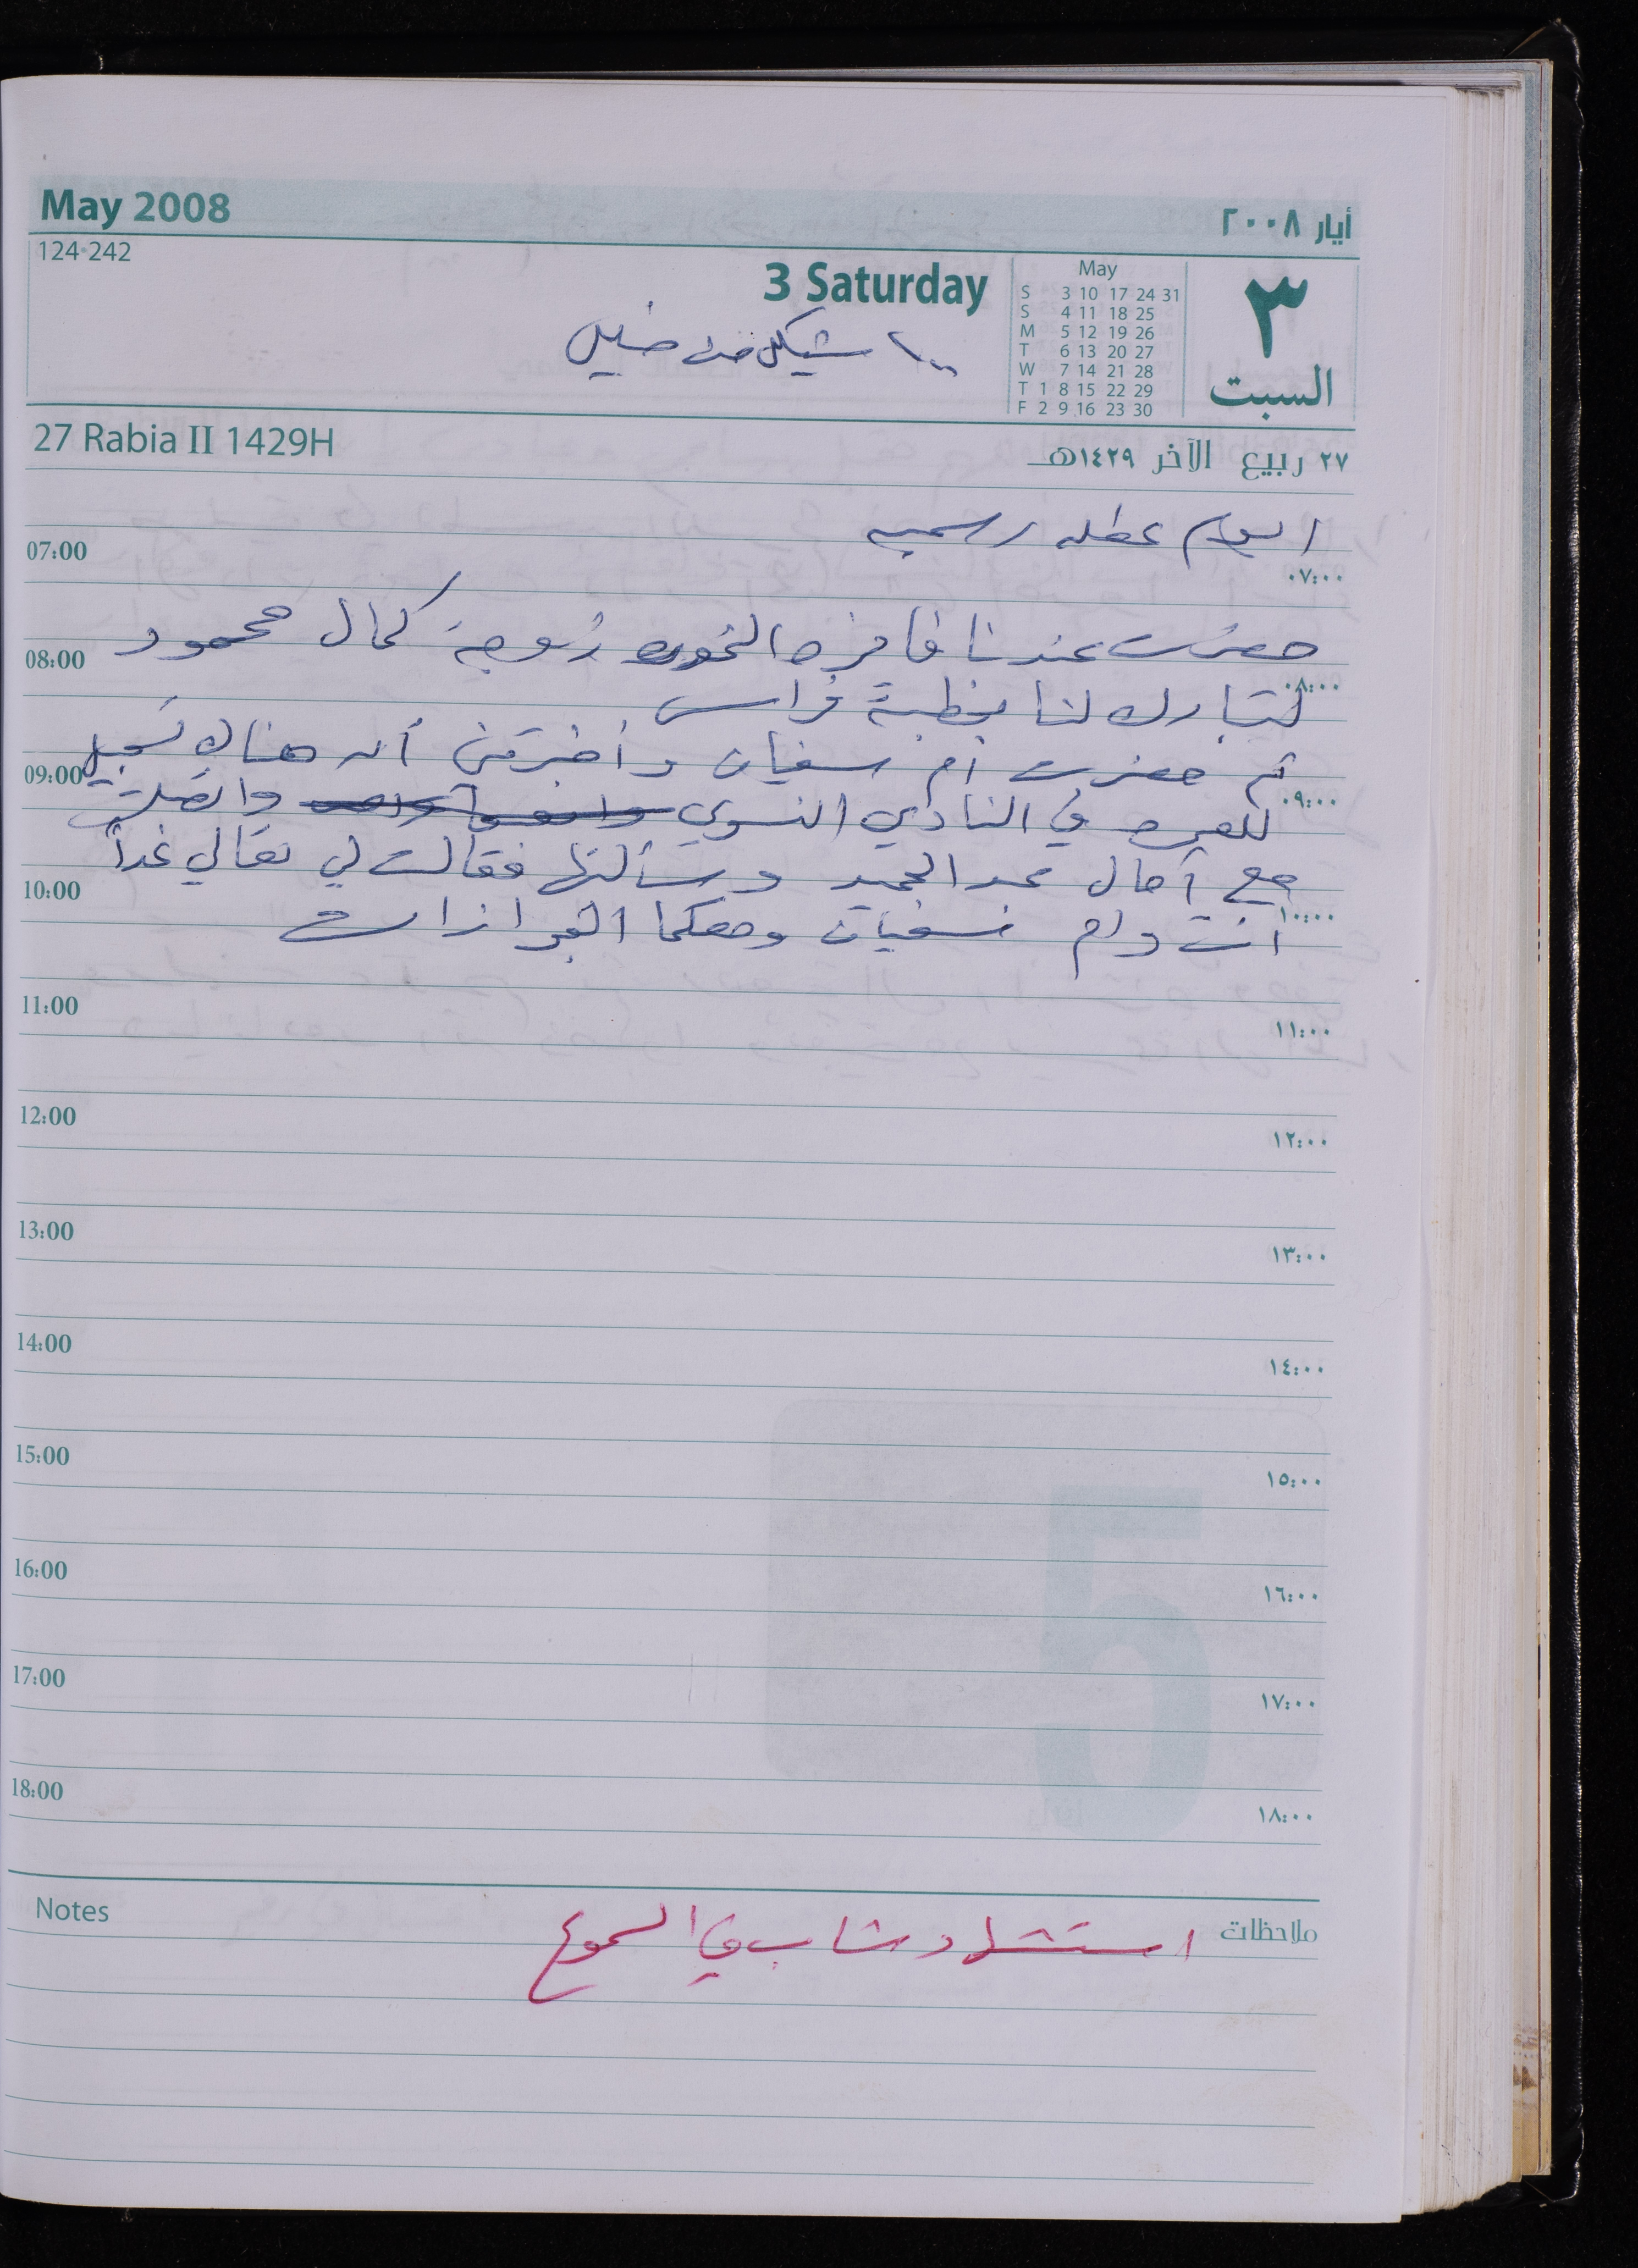 May 2008
أيار ٢٠٠٨
124-242
3 Saturday
May
S 3 10 17 24 31
S 4 11 18 25
M 5 12 19 26
T 6 13 20 27
W 7 14 21 28
T 1 8 15 22 29
F 2 9 16 23 30
٣
السبت
شيكل من
27 Rabia II 1429H
٢٧ ربيع الآخر ١٤٢٩هـ
اليوم عطله رسميه
07:00 ٠٧:٠٠
حضرت عندنا فايزه الخوره زوجة كمال محمود
08:00 ٠٨:٠٠
لتبارك لنا بخطبة فراس
ثم حضرت أم سفيان وأخبرتني أن هناك تسجيل
09:00 ٠٩:٠٠
للعمره في النادي النسوي واتصلت
مع آمال عبد الحميد وسألتها فقالت لي تعالي غداً
10:00 ١٠:٠٠
أنت وام سفيان ومعكما الجوازات
11:00 ١١:٠٠
12:00 ١٢:٠٠
13:00 ١٣:٠٠
14:00 ١٤:٠٠
15:00 ١٥:٠٠
16:00 ١٦:٠٠
17:00 ١٧:٠٠
18:00 ١٨:٠٠
Notes ملاحظات
استشهاد شاب في السموع